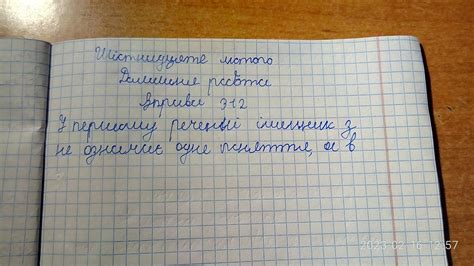 Шістнадцяте лютого
Домашня робота
Вправа 312
У першому реченні іменник з
не означає одне поняття, а в
2023-02-16 12:57